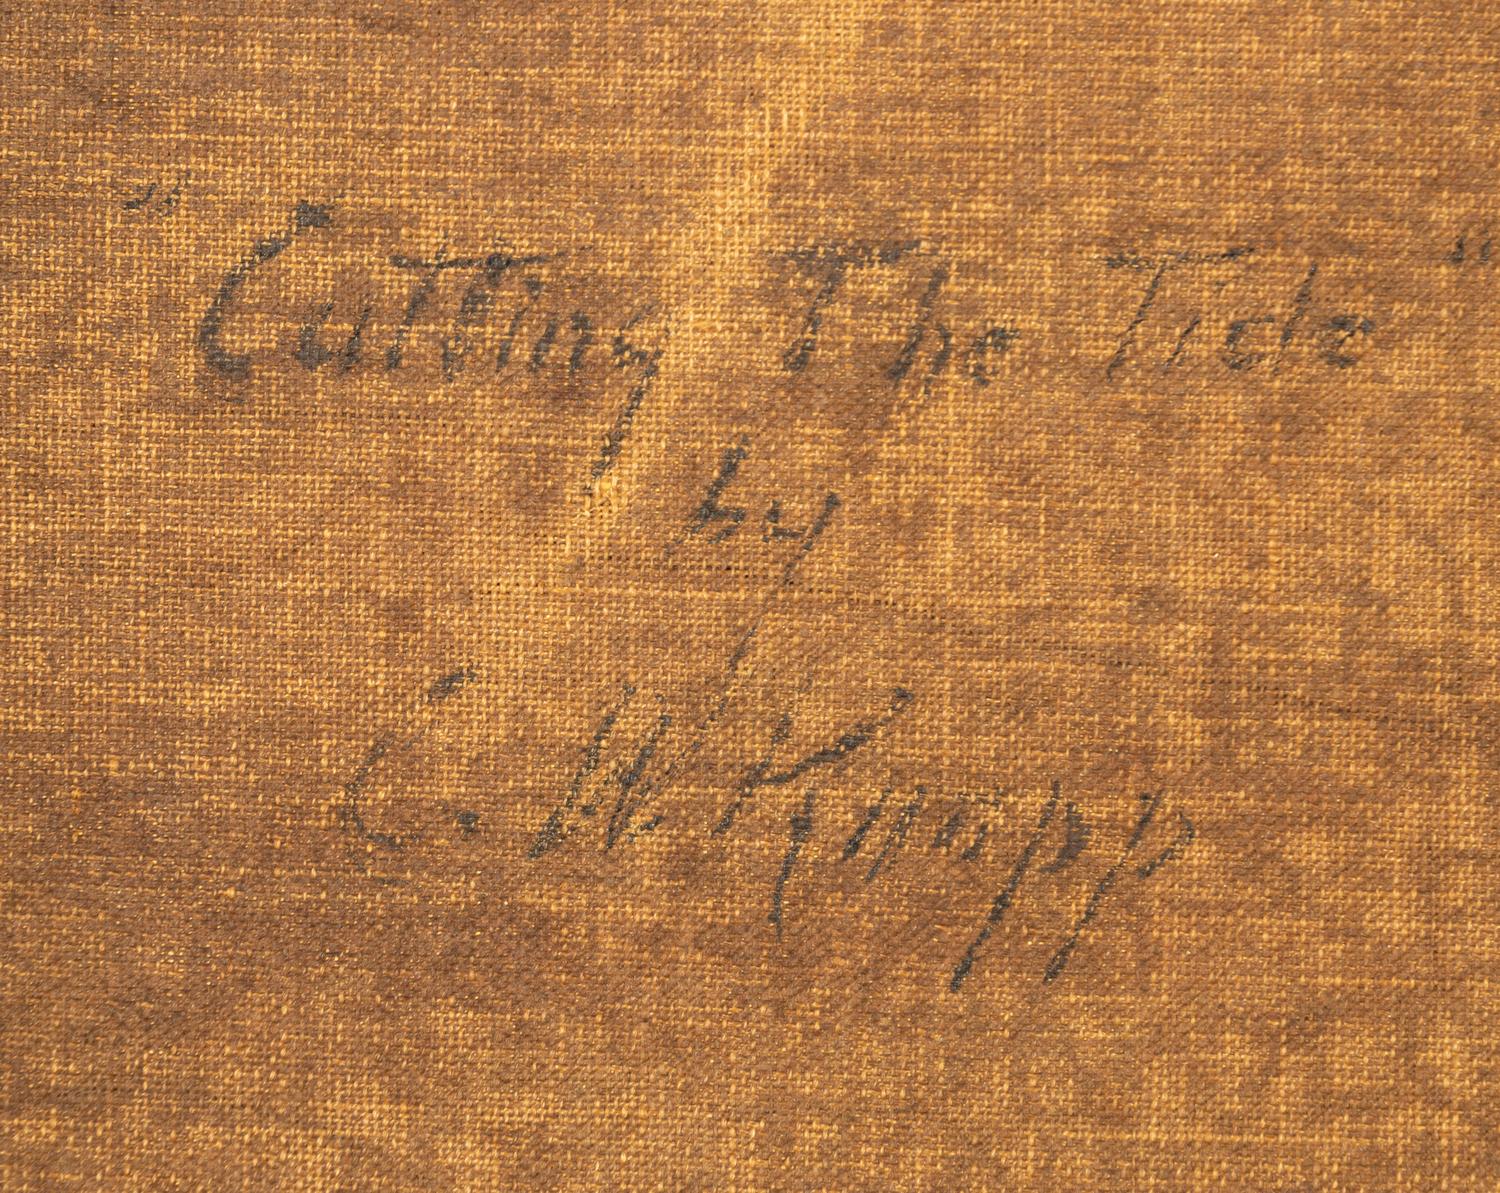 "Cutting The Tide"
by
C. W. Knapp